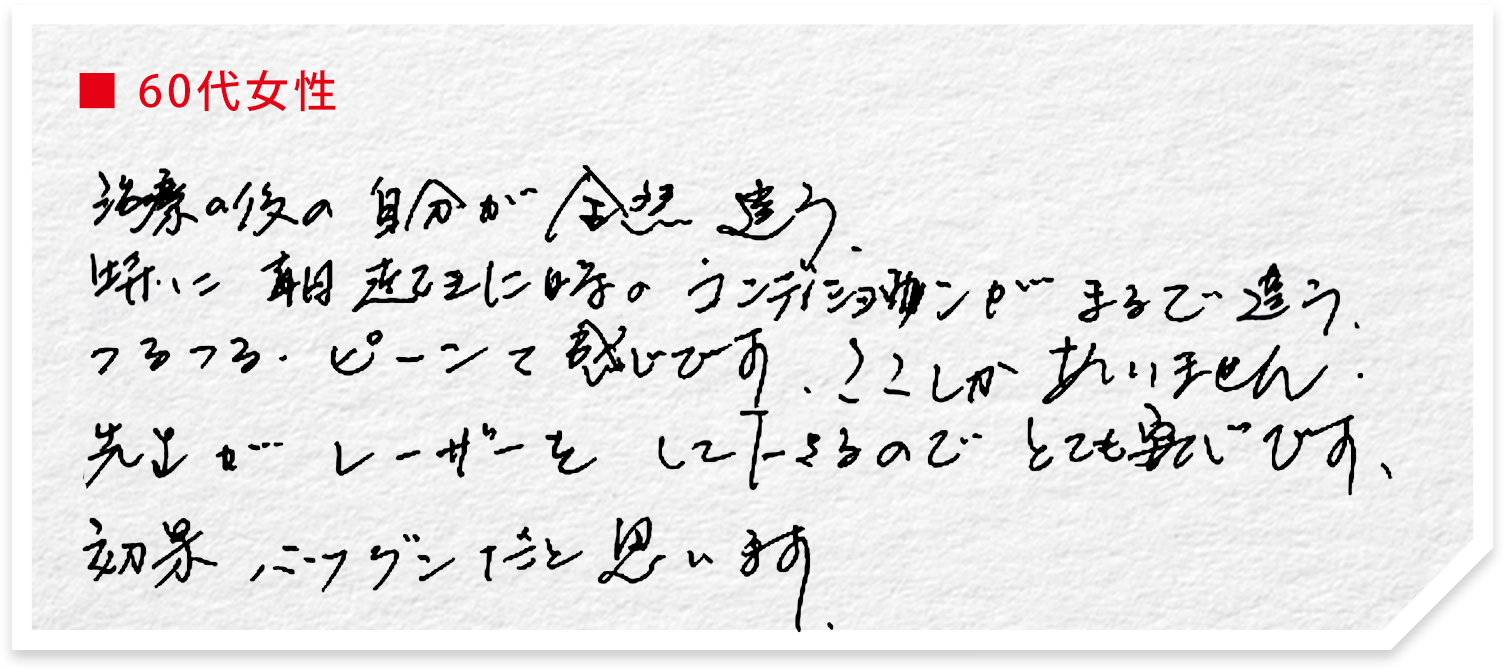 ■ 60代女性
治療の後の自分が全然違う.
特に朝起きた時のコンディションがまるで違う.
つるつる・ピーンて感じです.ここしかあいません.
先生がレーザーをして下さるのでとても安心です、
効果バツグンだと思います.